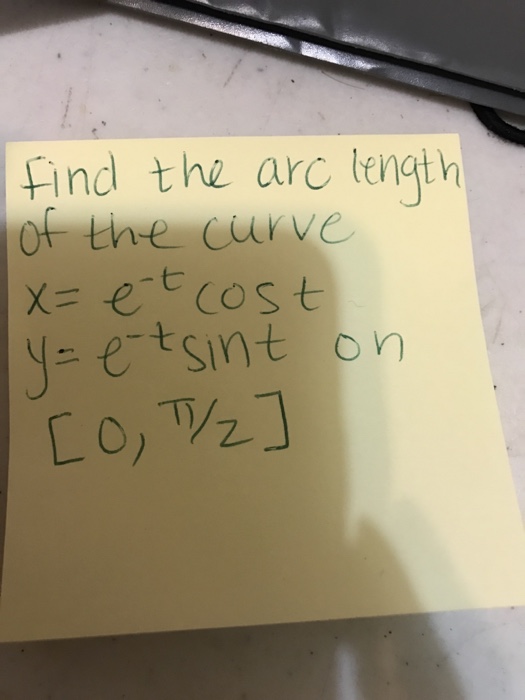 find the arc length
of the curve
x= e^-t cost
y= e^-t sint on
[0, π/2]